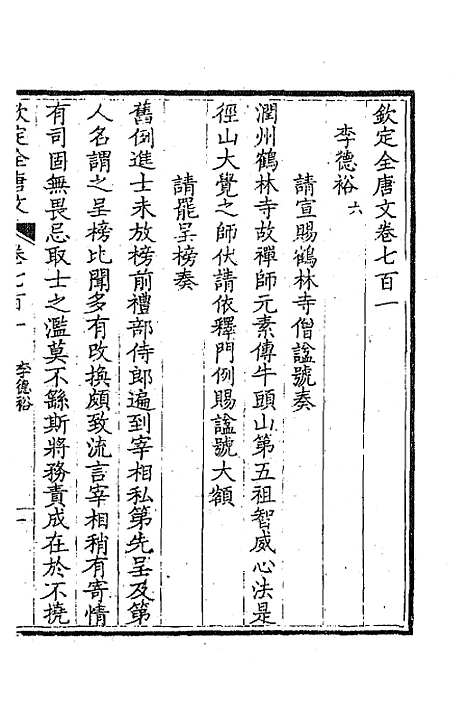 欽定全唐文卷七百一
李德裕 六
請宣賜鶴林寺僧諡號奏
潤州鶴林寺故禪師元素傳牛頭山第五祖智威心法是
徑山大覺之師伏請依釋門例賜諡號大額
請罷呈榜奏
舊例進士未放榜前禮部侍郎遍到宰相私第先呈及第
人名謂之呈榜比聞多有改換頗致流言宰相稍有寄情
有司固無畏忌取士之濫莫不繇斯將務責成在於不撓
欽定全唐文 卷七百一 李德裕 一